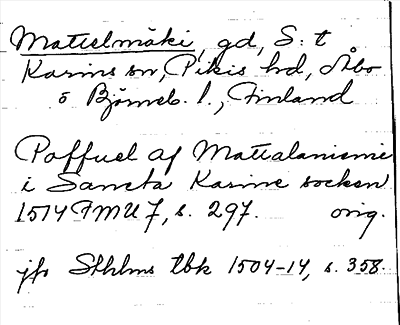 Mattelmäki, gd, S:t
Karins sn, Pikis hd, Åbo
o Björneb. l., Finland
Paffuel af Mattalaniemi
i Sancta Karine socken
1514 FMU 7, s. 297. orig.
jfr Sthlms tbk 1504-14, s. 358.